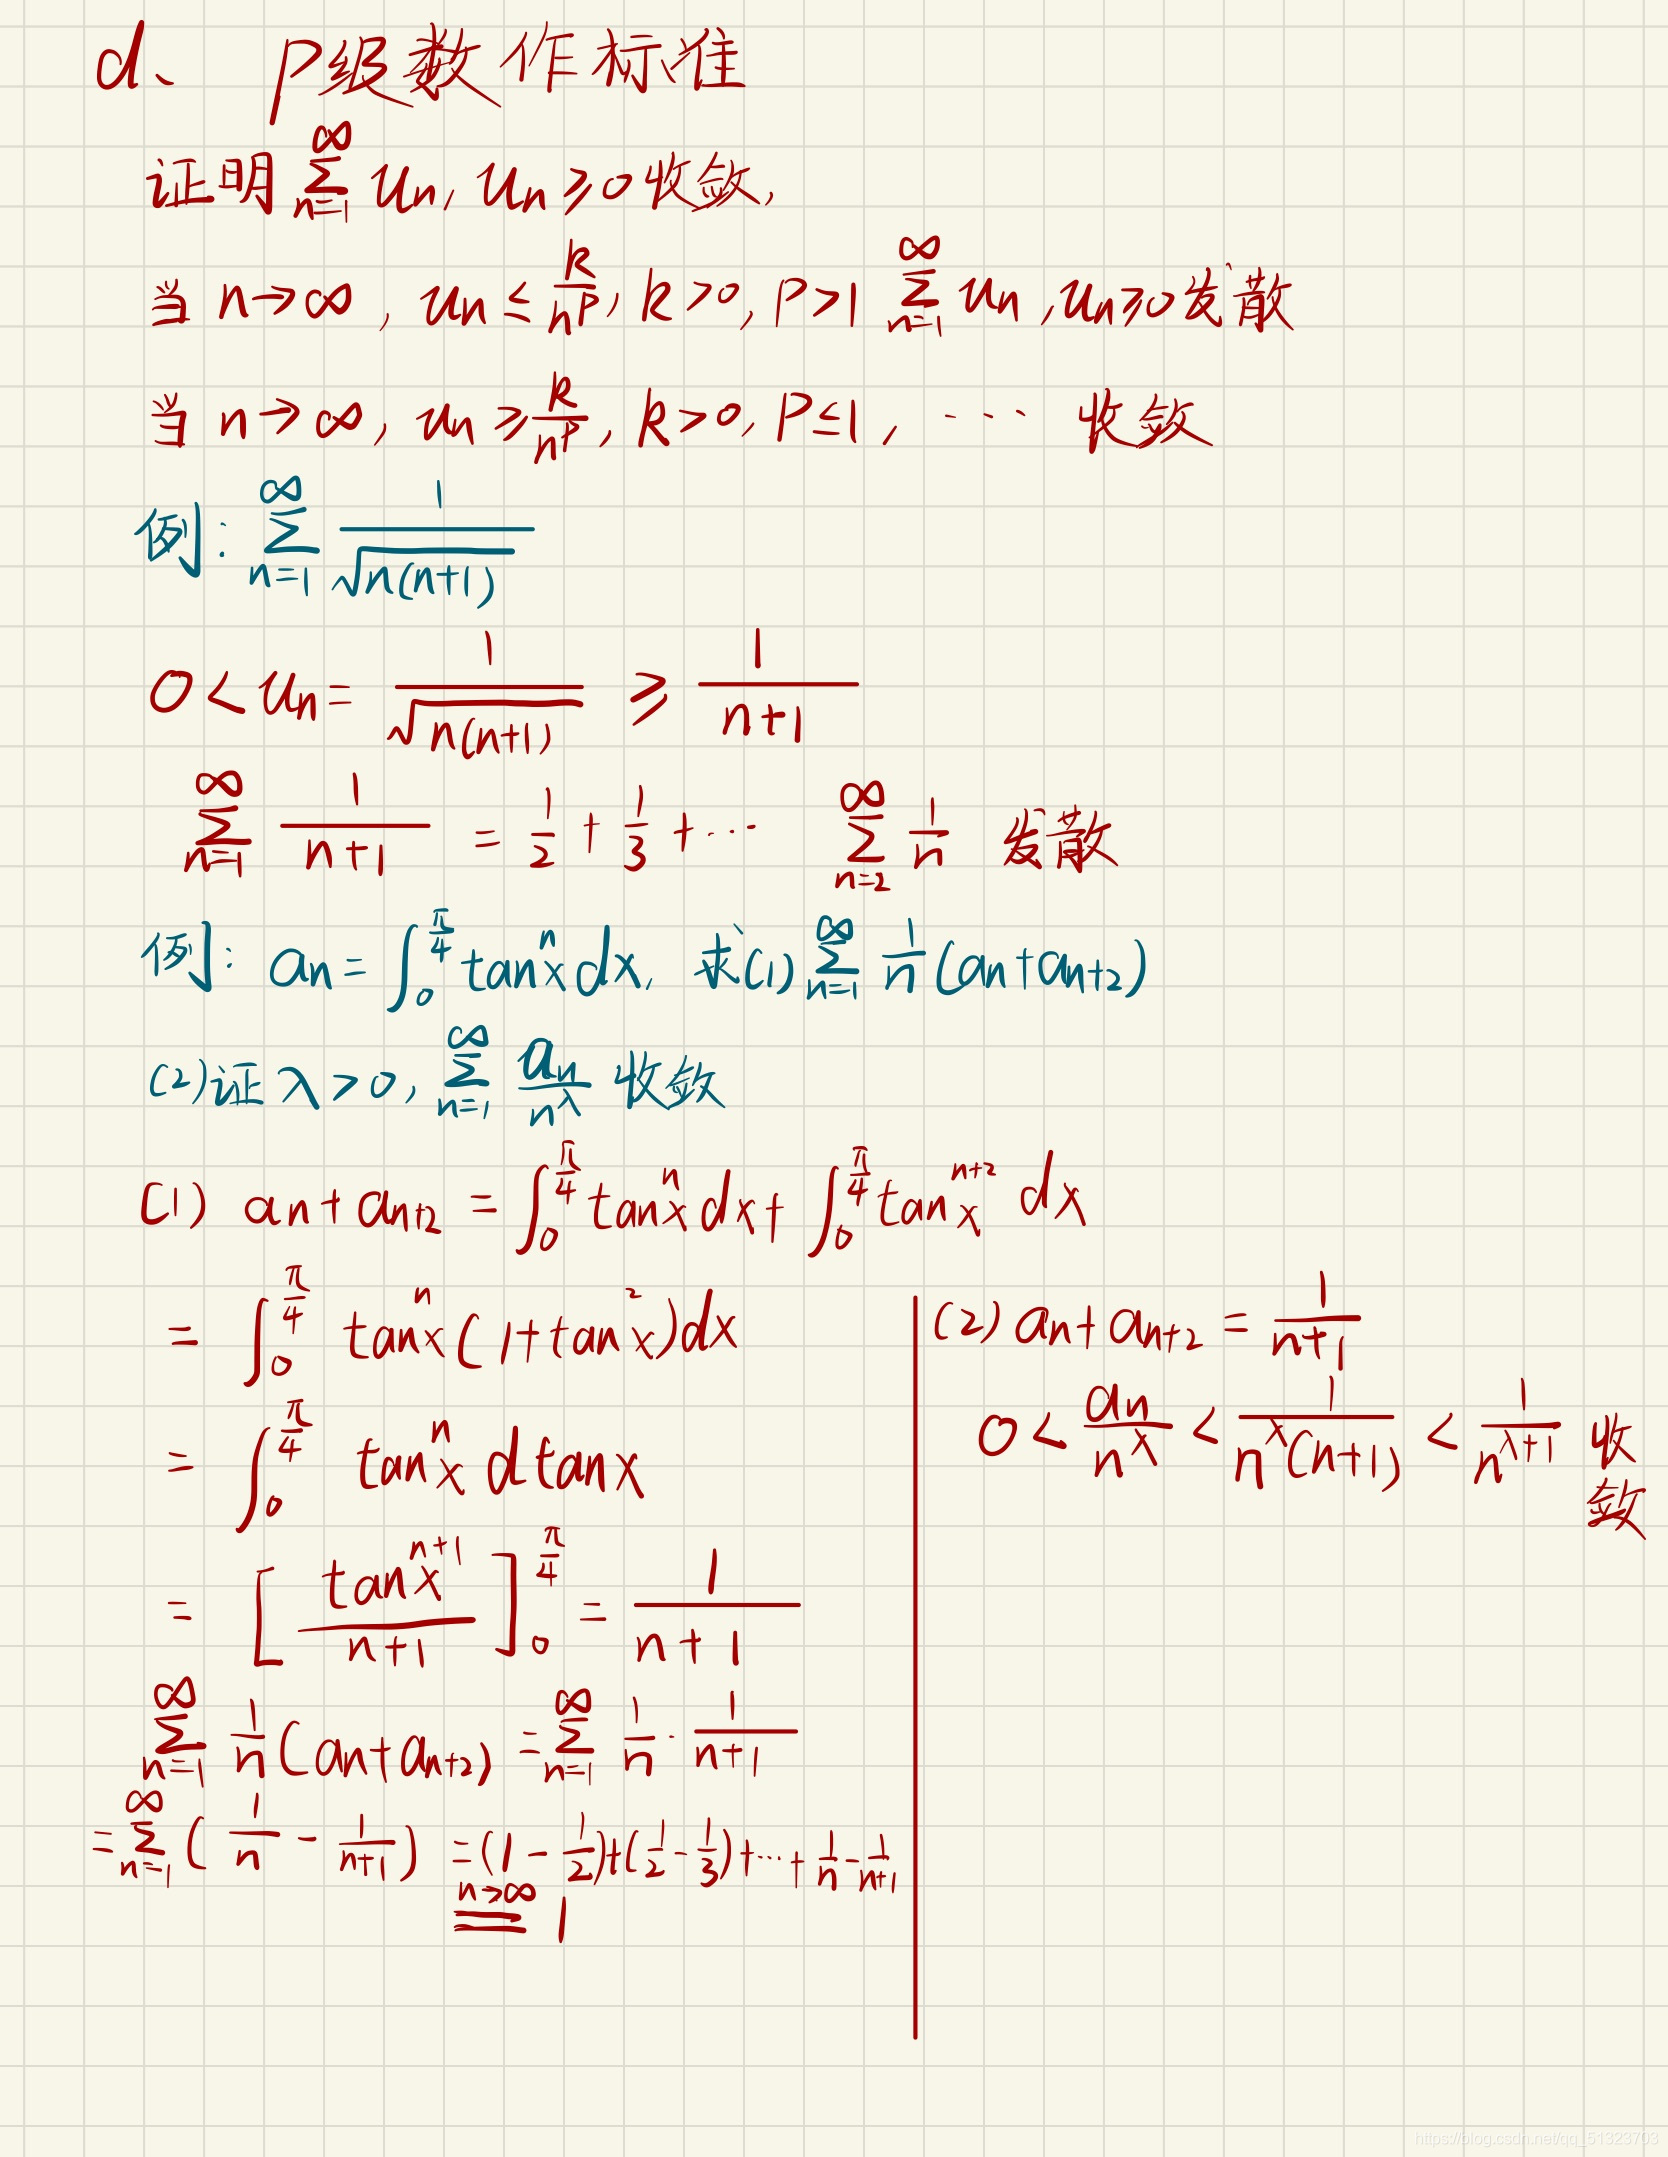 d、 P级数作标准
证明 ∑_{n=1}^{∞} u_n, u_n ≥ 0 收敛,
当 n→∞, u_n ≤ k/n^p, k>0, P>1 ∑_{n=1}^{∞} u_n, u_n ≥ 0 发散
当 n→∞, u_n ≥ k/n^p, k>0, P≤1, ···· 收敛
例: ∑_{n=1}^{∞} 1/√(n(n+1))
0 < u_n = 1/√(n(n+1)) ≥ 1/(n+1)
∑_{n=1}^{∞} 1/(n+1) = 1/2 + 1/3 + ··· ∑_{n=2}^{∞} 1/n 发散
例: a_n = ∫_0^{π/4} tan^n x dx, 求(1) ∑_{n=1}^{∞} 1/n (a_n + a_{n+2})
(2)证 λ>0, ∑_{n=1}^{∞} a_n/n^λ 收敛
(1) a_n + a_{n+2} = ∫_0^{π/4} tan^n x dx + ∫_0^{π/4} tan^{n+2} x dx
= ∫_0^{π/4} tan^n x (1+tan^2 x) dx
= ∫_0^{π/4} tan^n x d tan x
= [tan^{n+1} x/(n+1)]_0^{π/4} = 1/(n+1)
∑_{n=1}^{∞} 1/n (a_n + a_{n+2}) = ∑_{n=1}^{∞} 1/n · 1/(n+1)
= ∑_{n=1}^{∞} (1/n - 1/(n+1)) = (1 - 1/2) + (1/2 - 1/3) + ··· + 1/n - 1/(n+1)
n→∞ = 1
(2) a_n + a_{n+2} = 1/(n+1)
0 < a_n/n^λ < 1/(n^λ(n+1)) < 1/n^{λ+1} 收
敛
https://blog.csdn.net/qq_51323703